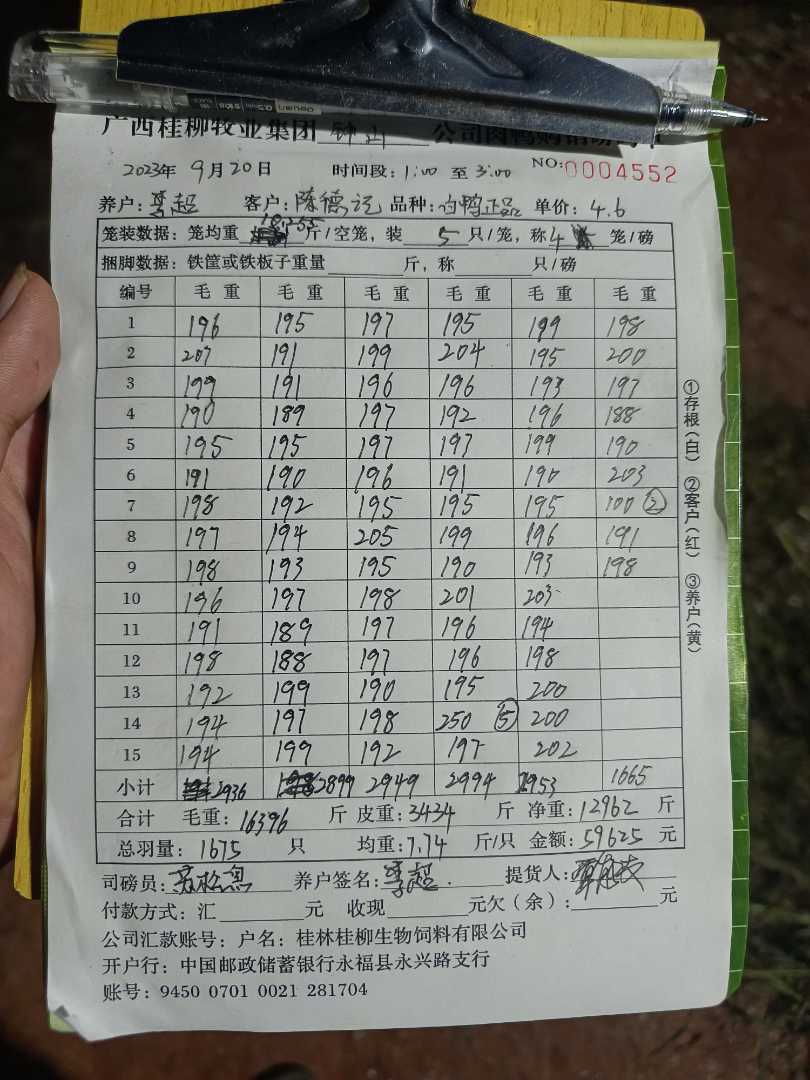 广西桂柳牧业集团 钟山 公司肉鸭购销
2023年 9月20日 时间段：1:00 至 3:00 NO:0004552
养户：李超 客户：陈德记 品种：白鸭正品 单价：4.6
笼装数据：笼均重 10.255 斤/空笼，装 5 只/笼，称 4 笼/磅
捆脚数据：铁筐或铁板子重量 斤，称 只/磅
编号 毛重 毛重 毛重 毛重 毛重 毛重
1 196 195 197 195 199 198
2 207 191 199 204 195 200
3 199 191 196 196 193 197
4 190 189 197 192 196 188
5 195 195 197 197 199 190
6 191 190 196 191 190 203
7 198 192 195 195 195 100 ②
8 197 194 205 199 196 191
9 198 193 195 190 193 198
10 196 197 198 201 203
11 191 189 197 196 194
12 198 188 197 196 198
13 192 199 190 195 200
14 194 197 198 250 ⑤ 200
15 194 199 192 197 202
小计 2936 2899 2949 2994 2953 1665
合计 毛重：16396 斤 皮重：3434 斤 净重：12962 斤
总羽量：1675 只 均重：7.74 斤/只 金额：59625 元
司磅员： 养户签名：李超. 提货人：
付款方式：汇 元 收现 元欠（余）： 元
公司汇款账号：户名：桂林桂柳生物饲料有限公司
开户行：中国邮政储蓄银行永福县永兴路支行
账号：9450 0701 0021 281704
①存根（白） ②客户（红） ③养户（黄）